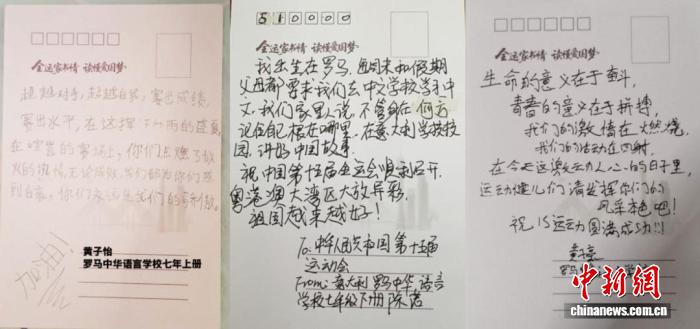 全运家书情 读懂爱国梦
超越对手,超越自我,赛出成绩,
赛出水平,在这挥汗如雨的盛夏,
加油!
黄子怡
罗马中华语言学校七年上册
510000
全运家书情 读懂爱国梦
我出生在罗马,每周末和假期
父母都要求我们去中文学校学习中
文,我们家里人说,不管身在何方
记住自己根在哪里,在意大利学校校
园,讲好中国故事.
祝中国第十五届全运会顺利召开,
粤港澳大湾区大放异彩,
祖国越来越好!
To:中华人民共和国第十五届
运动会
From:意大利罗马中华语言
学校七年级下册
全运家书情 读懂爱国梦
生命的意义在于奋斗,
青春的意义在于拼搏,
我们的激情在燃烧,
我们的活动在四射,
在今天这激动人心的日子里,
运动健儿们请发挥你们的
风采本色吧!
祝15运动圆满成功!!!
中新网
WWW.CHINANEWS.COM